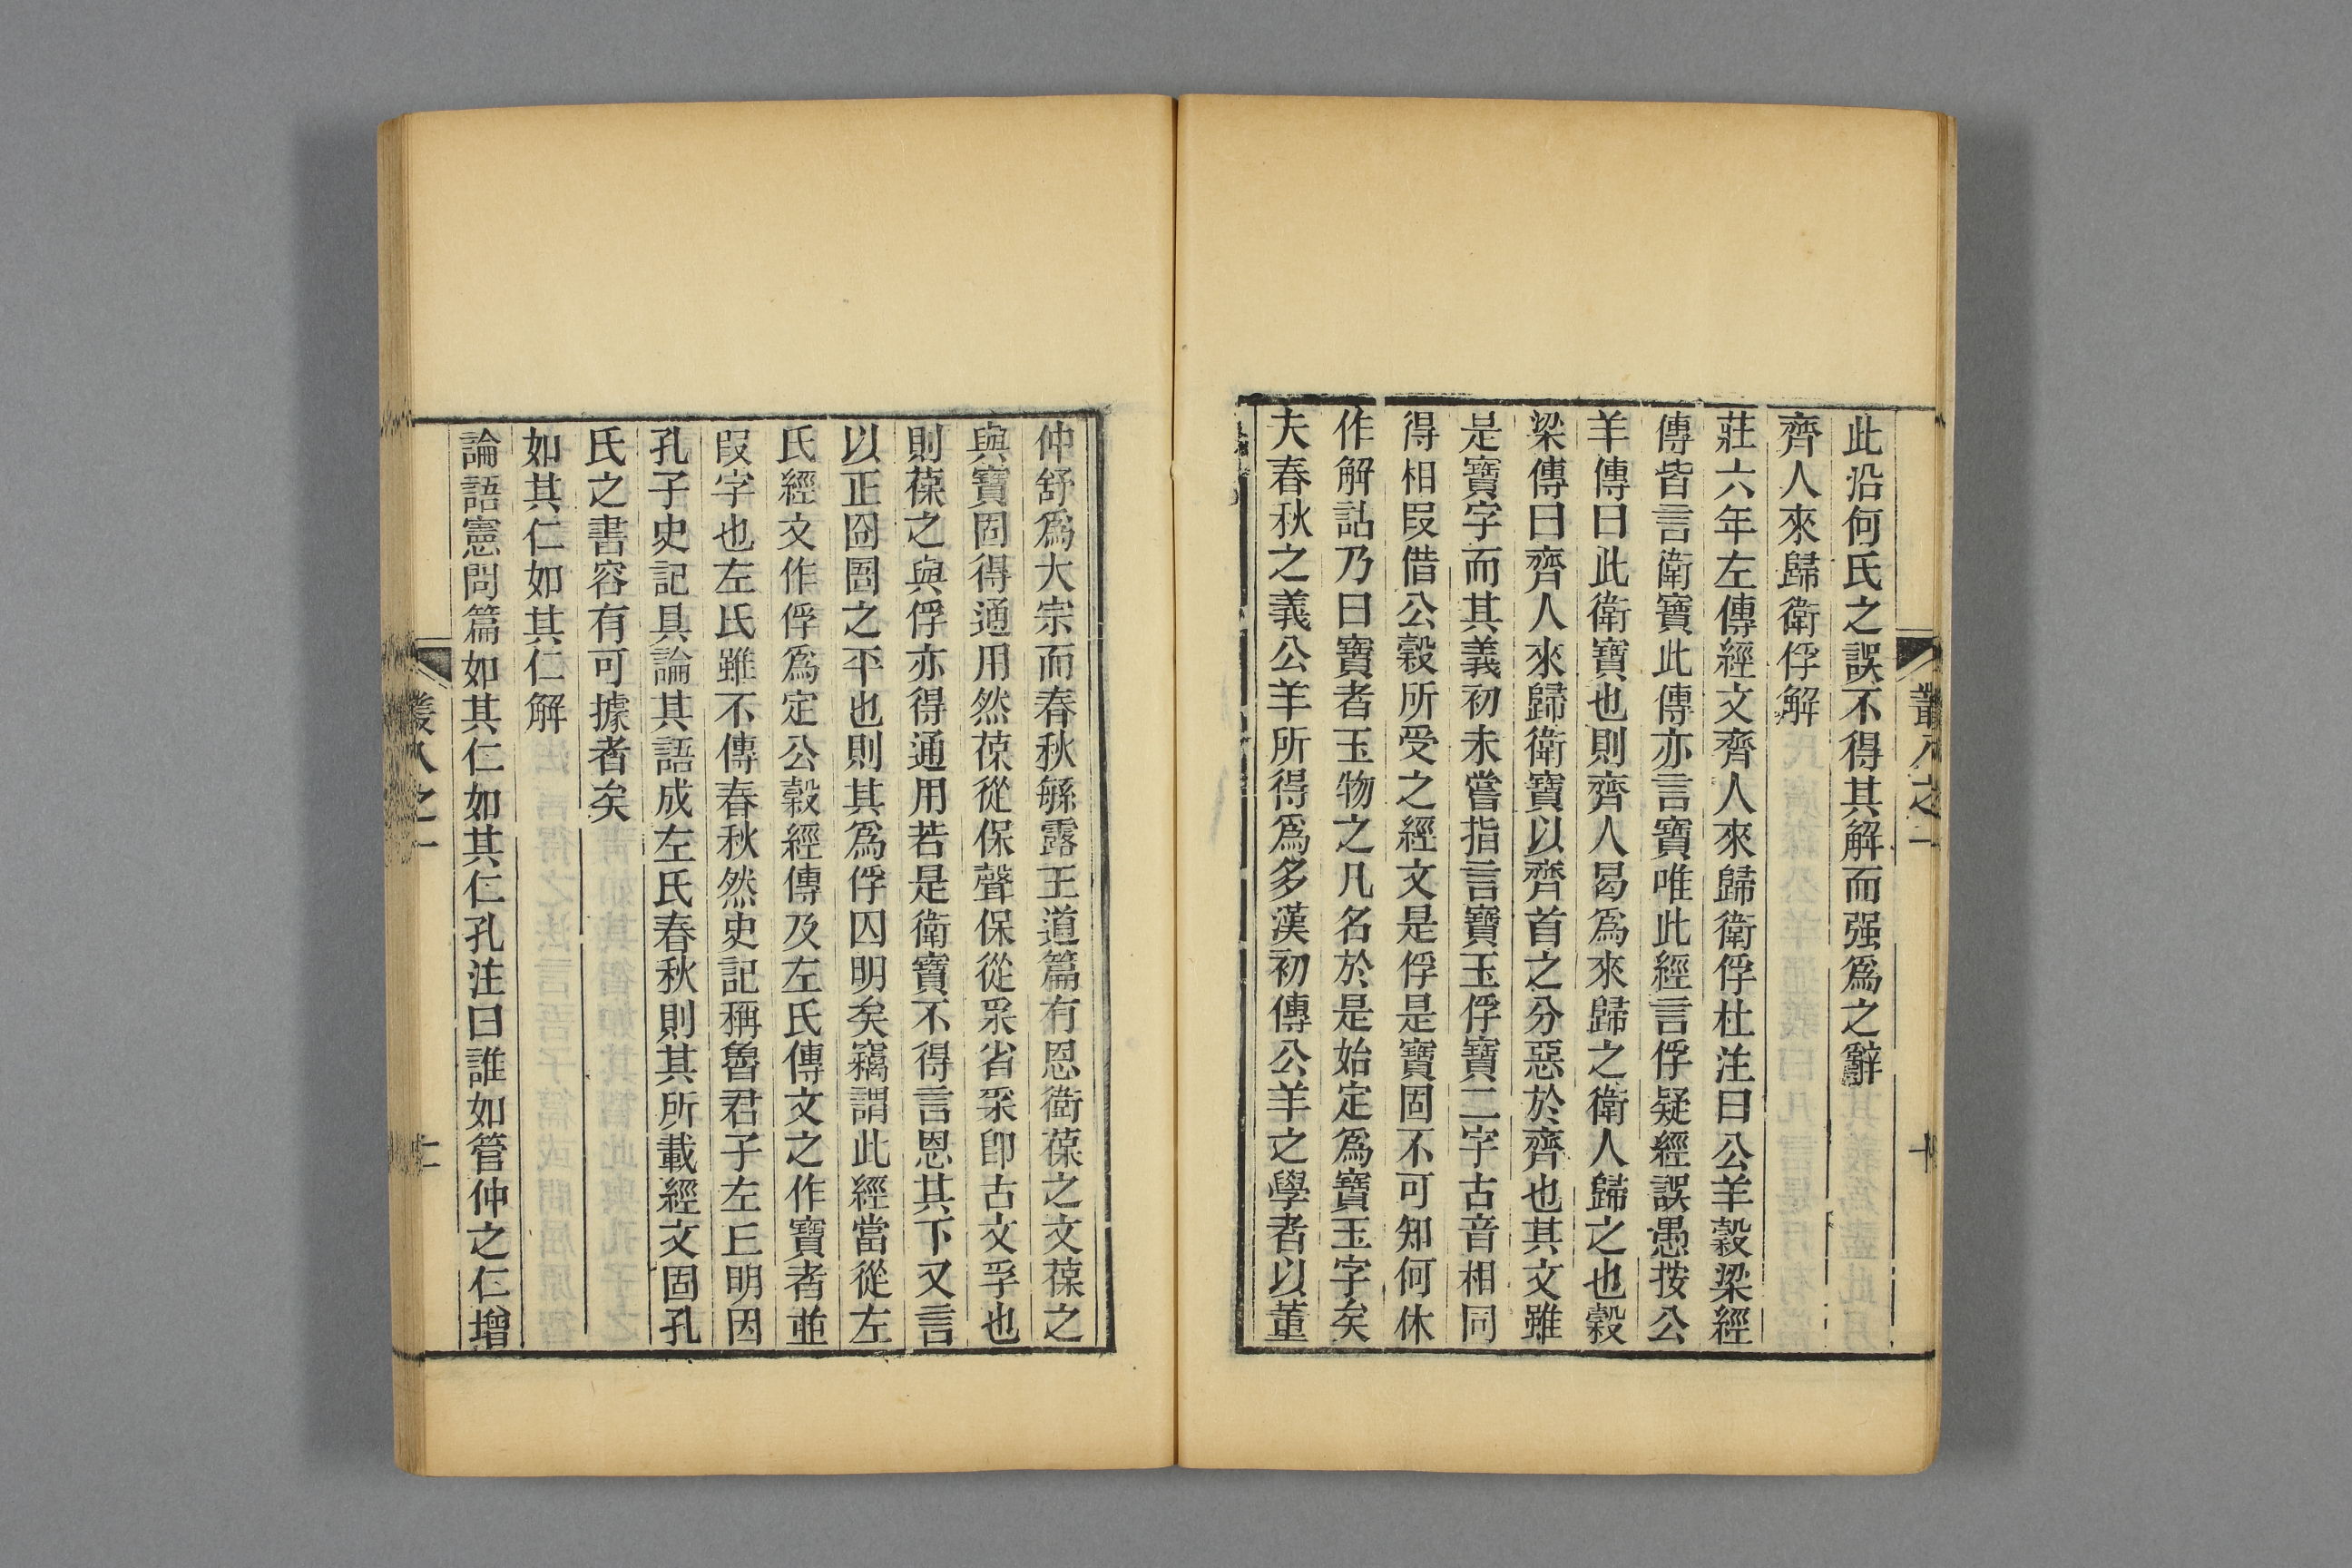 此沿何氏之誤不得其解而强爲之辭
齊人來歸衛俘解
莊六年左傳經文齊人來歸衛俘杜注曰公羊穀梁經
傳皆言衛寶此傳亦言寶唯此經言俘疑經誤愚按公
羊傳曰此衛寶也則齊人曷爲來歸之衛人歸之也穀
梁傳曰齊人來歸衛寶以齊首之分惡於齊也其文雖
是寶字而其義初未嘗指言寶玉俘寶二字古音相同
得相叚借公穀所受之經文是俘是寶固不可知何休
作解詁乃曰寶者玉物之凡名於是始定爲寶玉字矣
夫春秋之義公羊所得爲多漢初傳公羊之學者以董
仲舒爲大宗而春秋緐露王道篇有恩衛葆之文葆之
與寶固得通用然葆從保聲保從𤓽省𤓽卽古文孚也
則葆之與俘亦得通用若是衛寶不得言恩其下又言
以正囹圄之平也則其爲俘囚明矣竊謂此經當從左
氏經文作俘爲定公穀經傳及左氏傳文之作寶者並
叚字也左氏雖不傳春秋然史記稱魯君子左𠀉明因
孔子史記具論其語成左氏春秋則其所載經文固孔
氏之書容有可據者矣
如其仁如其仁解
論語憲問篇如其仁如其仁孔注曰誰如管仲之仁增
叢八之二
十